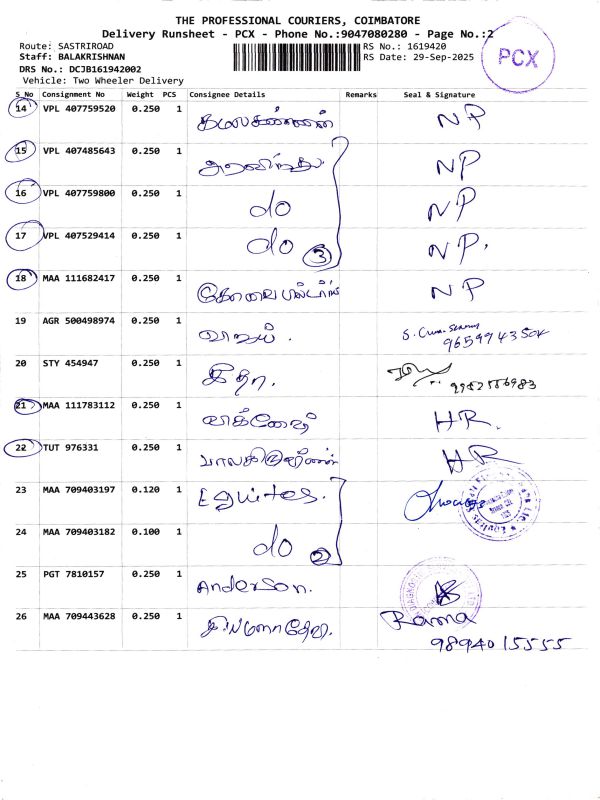 THE PROFESSIONAL COURIERS, COIMBATORE
Delivery Runsheet - PCX - Phone No.:9047080280 - Page No.:2
Route: SASTRIROAD RS No.: 1619420
Staff: BALAKRISHNAN RS Date: 29-Sep-2025
PCX
DRS No.: DCJB161942002
Vehicle: Two Wheeler Delivery
S_No Consignment No Weight PCS Consignee Details Remarks Seal & Signature
14 VPL 407759520 0.250 1 NP
15 VPL 407485643 0.250 1 அரவிந்த் NP
16 VPL 407759800 0.250 1 do NP
17 VPL 407529414 0.250 1 do 3 NP.
18 MAA 111682417 0.250 1 NP
19 AGR 500498974 0.250 1
20 STY 454947 0.250 1
21 MAA 111783112 0.250 1 HR.
22 TUT 976331 0.250 1 HR
23 MAA 709403197 0.120 1 Equitas.
24 MAA 709403182 0.100 1 do 2
25 PGT 7810157 0.250 1 Anderson.
26 MAA 709443628 0.250 1 Rama
9894015555